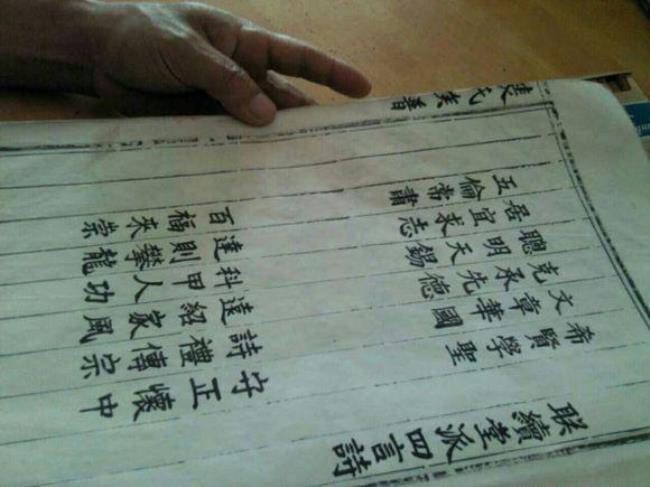 联續堂派四言詩
希賢學聖 守正懷中
文章華國 詩禮傳宗
克承先德 遠紹家風
聰明天錫 科甲人功
居宜求志 達則攀龍
五倫常肅 百福來崇
氏族譜